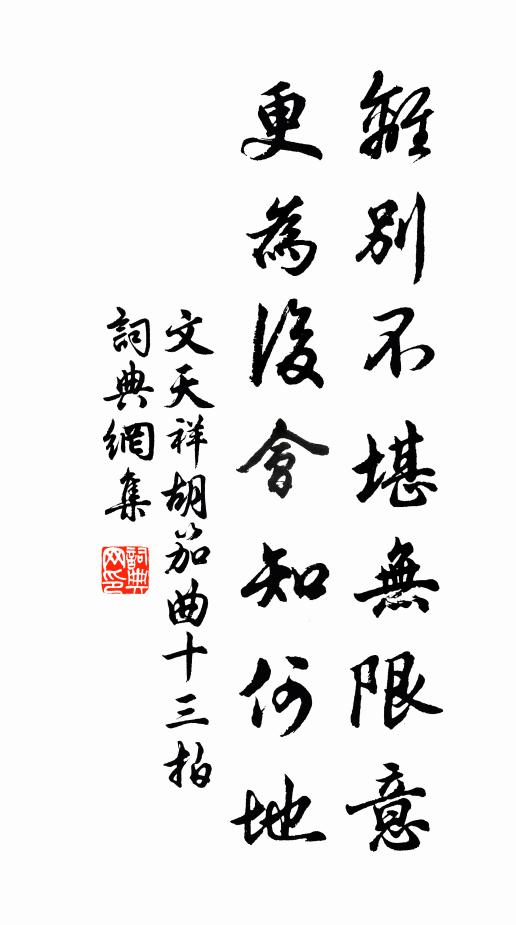 離別不堪無限意
更為後會知何地
文天祥胡笳曲十三拍
詞典網集
詞典
网印